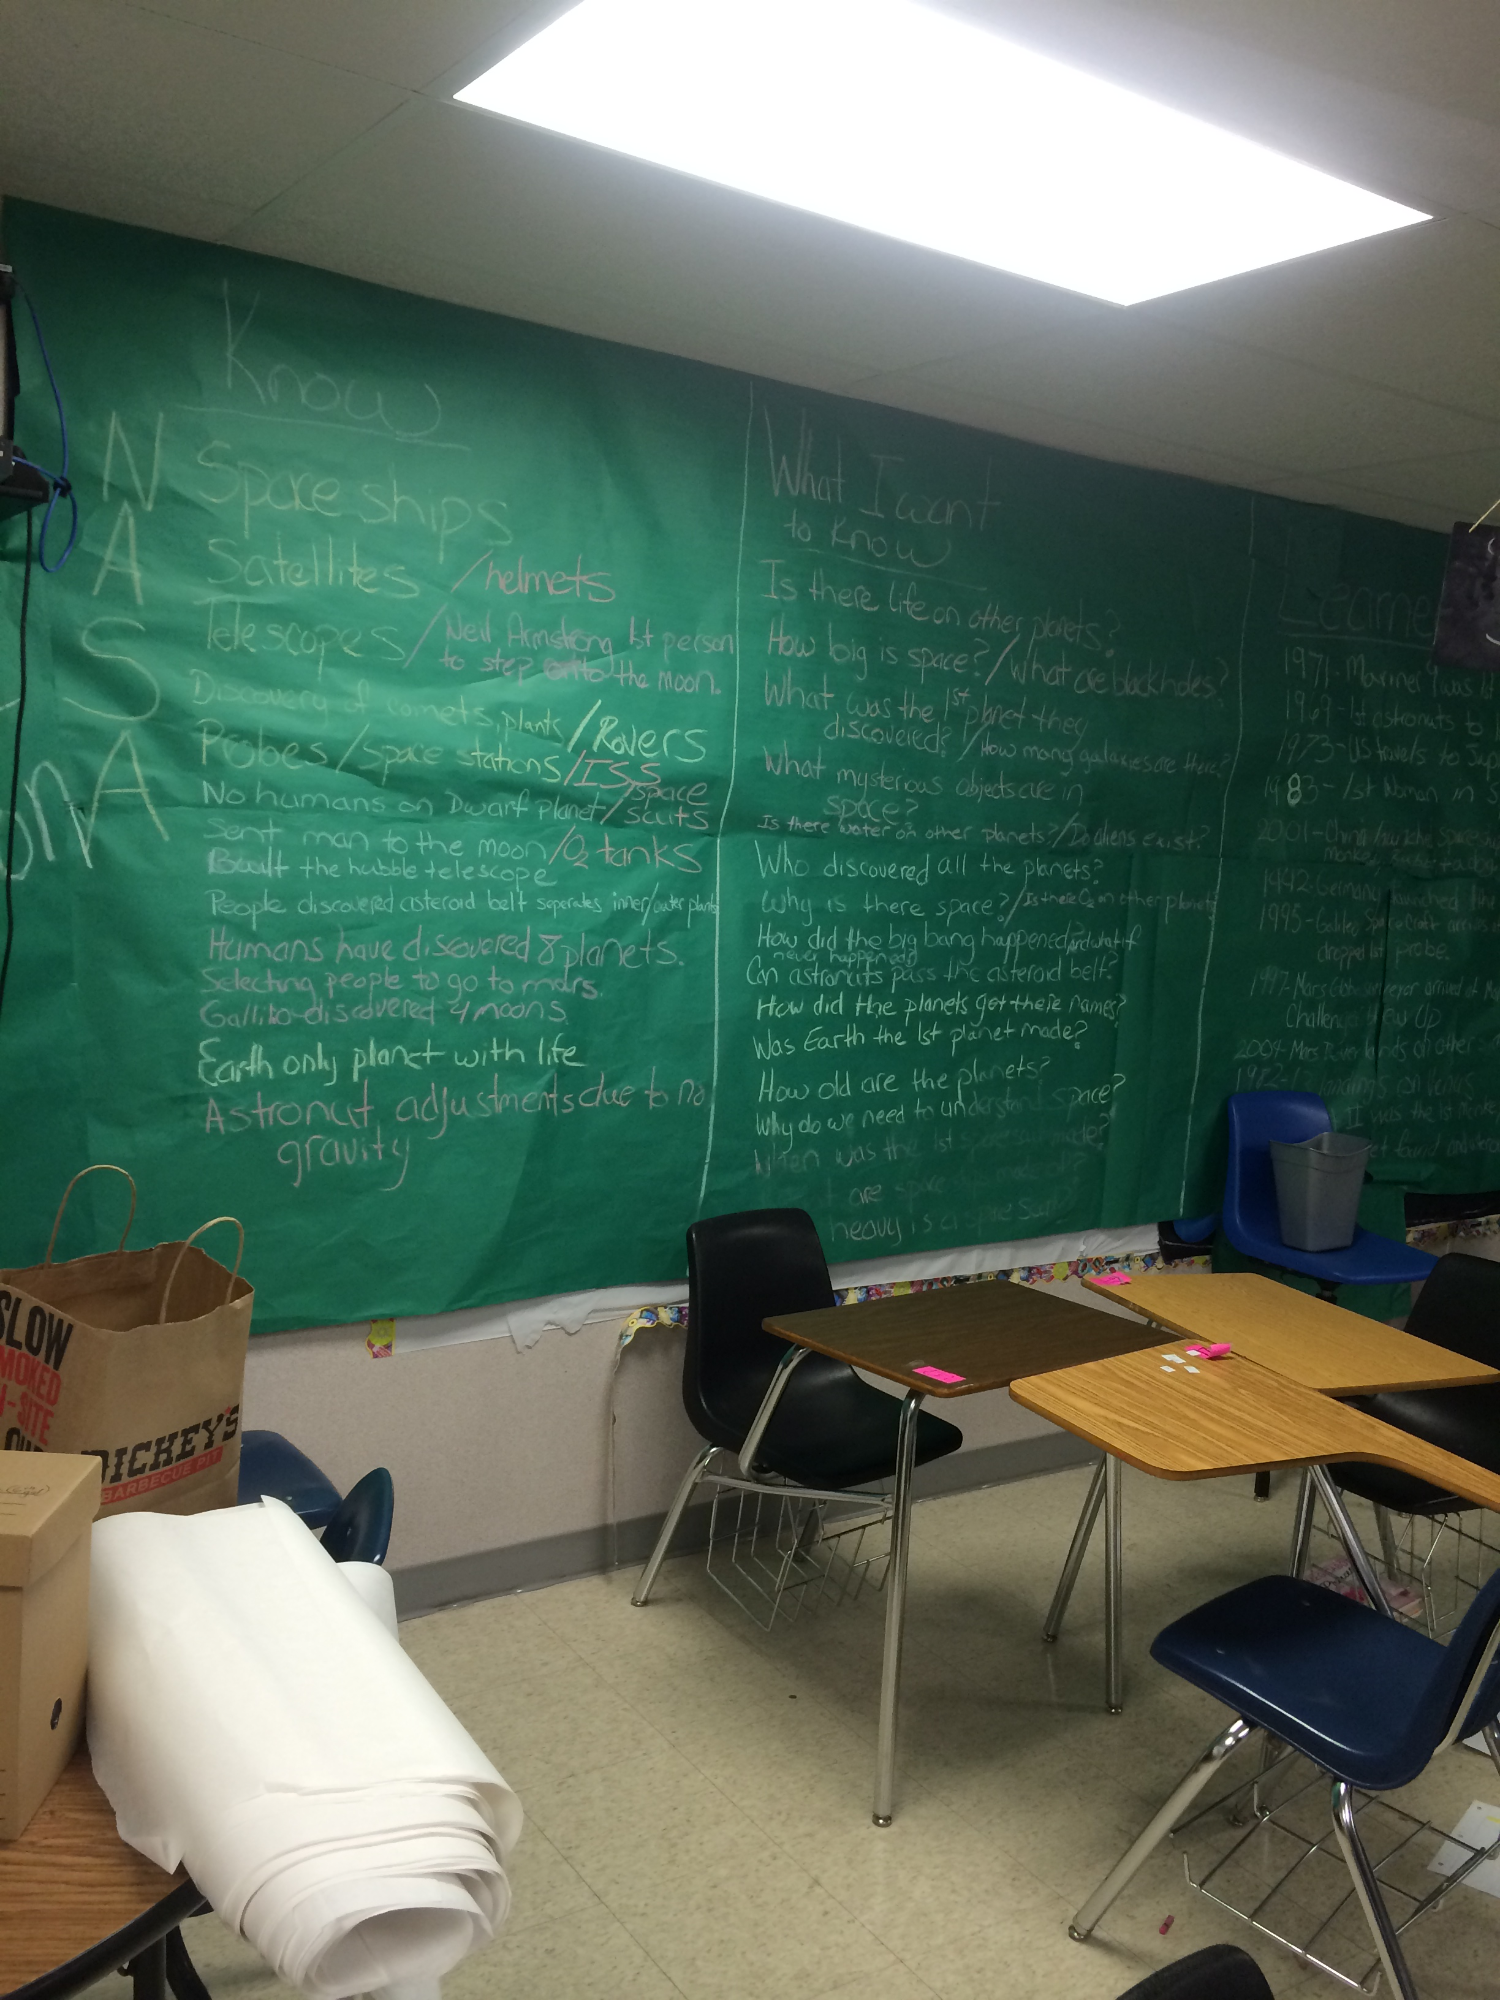 Know
NASA
Spaceships
Satellites /helmets
Telescopes / Neil Armstrong 1st person
to step onto the moon.
Discovery of comets, plants /Rovers
Probes /space stations /ISS
No humans on Dwarf planet /space suits
Sent man to the moon /O2 tanks
Built the hubble telescope
People discovered asteroid belt seperates inner/outer plants
Humans have discovered 8 planets.
Selecting people to go to mars.
Galliko-discovered 4 moons
Earth only planet with life
Astronaut adjustments due to no
gravity
What I want
to Know
Is there life on other planets?
How big is space? /What are blackholes?
What was the 1st planet they
discovered? /How many galaxies are there?
What mysterious objects are in
space?
Is there water on other planets? / Do aliens exist?
Who discovered all the planets?
Why is there space? /Is there O2 on other planets
How did the big bang happened? and what if
never happened?
Can astronauts pass the asteroid belt?
How did the planets get there names?
Was Earth the 1st planet made?
How old are the planets?
Why do we need to understand space?
When was the 1st space suit made?
are space
heavy is a space suit?
Learne
1971- Mariner 9 was 1st
1969-1st astronuts to
1973- US travels to Jup
1983- 1st Woman in S
2001-China space
Monkey
1942-Germany launched the
1995- Galileo SpaceCraft arrives
dropped 1st probe.
1997-Mars arrived at
Challenger Blew Up
2004- Mars Rover lands on other
1982- landings on Venus
II was the 1st
found
SLOW
SMOKED
-SITE
DICKEY'S
BARBECUE PIT